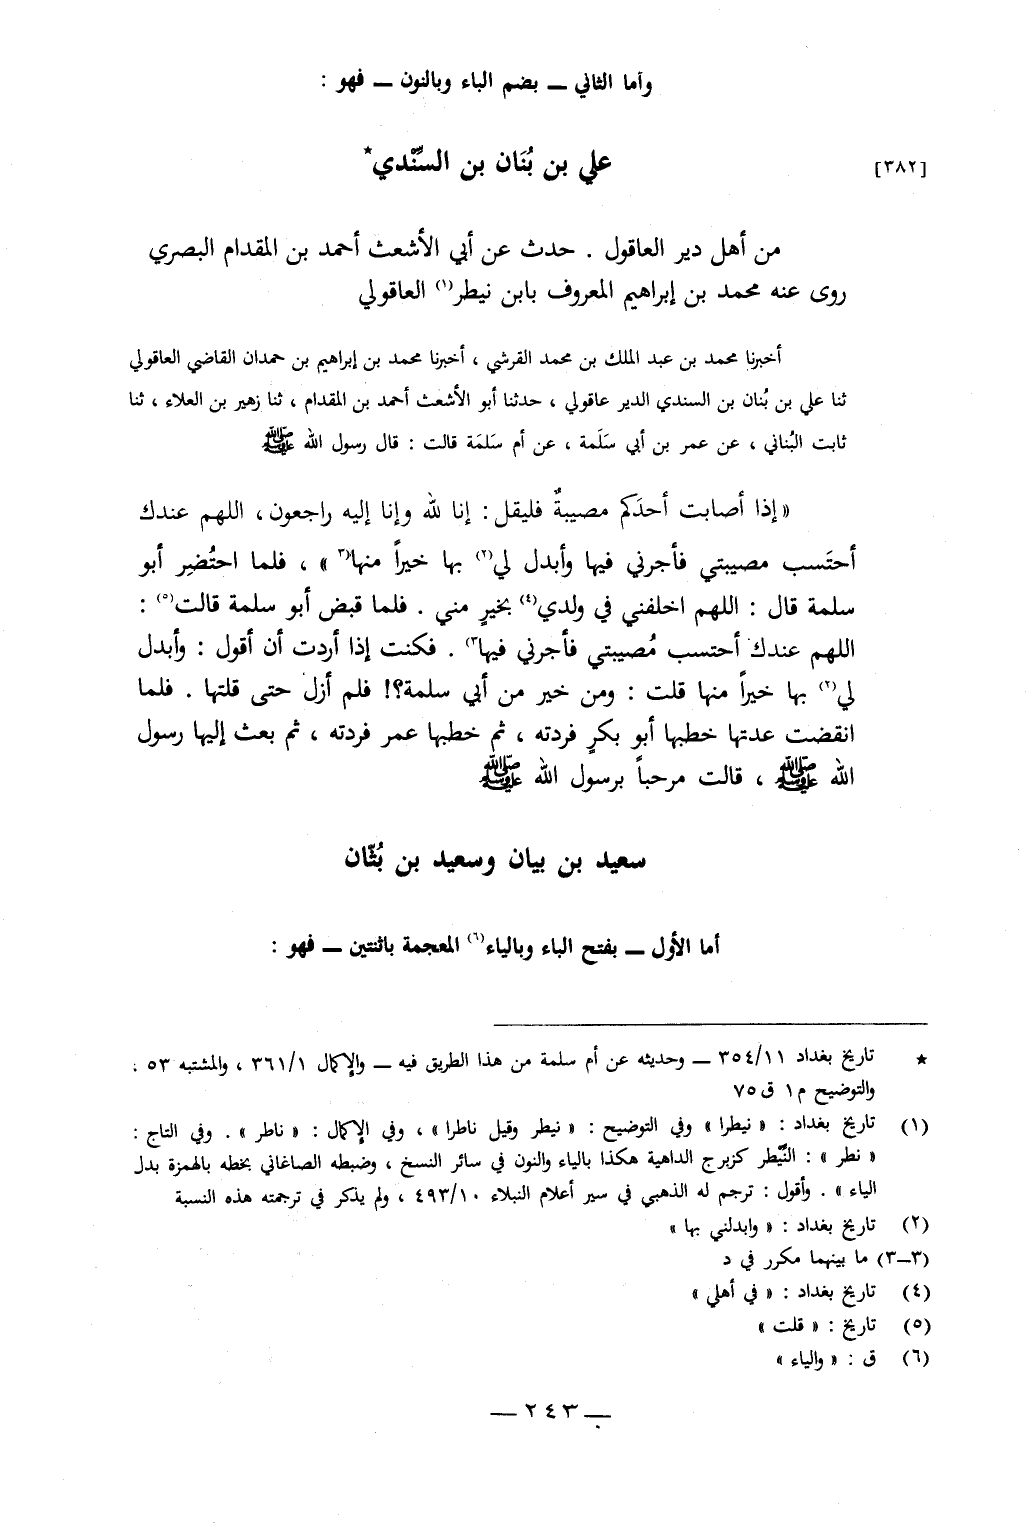 وأما الثاني ــ بضم الباء وبالنون ــ فهو :
[٣٨٢] علي بن بُنَان بن السِّنْدي*
من أهل دير العاقول . حدث عن أبي الأشعث أحمد بن المقدام البصري
روى عنه محمد بن إبراهيم المعروف بابن نيطر(١) العاقولي
أخبرنا محمد بن عبد الملك بن محمد القرشي ، أخبرنا محمد بن إبراهيم بن حمدان القاضي العاقولي
ثنا علي بن بُنان بن السندي الدير عاقولي ، حدثنا أبو الأشعث أحمد بن المقدام ، ثنا زهير بن العلاء ، ثنا
ثابت البُناني ، عن عمر بن أبي سَلَمة ، عن أم سَلمَة قالت : قال رسول الله ﷺ
« إذا أصابت أحدَكم مصيبةٌ فليقل : إنا لله وإنا إليه راجعون ، اللهم عندك
أحتَسب مصيبتي فأجرني فيها وأبدل لي(٢) بها خيراً منها(٣ » ، فلما احتُضِر أبو
سلمة قال : اللهم اخلفني في ولدي(٤) بخيرٍ مني . فلما قبض أبو سلمة قالت(٥) :
اللهم عندك أحتسب مُصيبتي فأجرني فيها٣) . فكنت إذا أردت أن أقول : وأبدل
لي(٢) بها خيراً منها قلت : ومن خير من أبي سلمة؟! فلم أزل حتى قلتها . فلما
انقضت عدتها خطبها أبو بكرٍ فردته ، ثم خطبها عمر فردته ، ثم بعث إليها رسول
الله ﷺ ، قالت مرحباً برسول الله ﷺ
سعيد بن بيان وسعيد بن بُثّان
أما الأول ــ بفتح الباء وبالياء(٦) المعجمة باثنتين ــ فهو :
* تاريخ بغداد ٣٥٤/١١ ــ وحديثه عن أم سلمة من هذا الطريق فيه ــ والإكمال ٣٦١/١ ، والمشتبه ٥٣ :
والتوضيح م١ ق٧٥
(١) تاريخ بغداد : « نيطرا » وفي التوضيح : « نيطر وقيل ناطرا » ، وفي الإكمال : « ناطر » . وفي التاج :
« نطر » : النَّيْطر كزبرج الداهية هكذا بالياء والنون في سائر النسخ ، وضبطه الصاغاني بخطه بالهمزة بدل
الياء » . وأقول : ترجم له الذهبي في سير أعلام النبلاء ٤٩٣/١٠ ، ولم يذكر في ترجمته هذه النسبة
(٢) تاريخ بغداد : « وابدلني بها »
(٣ــ٣) ما بينهما مكرر في د
(٤) تاريخ بغداد : « في أهلي »
(٥) تاريخ : « قلت »
(٦) ق : « والياء »
ــ ٢٤٣ ــ